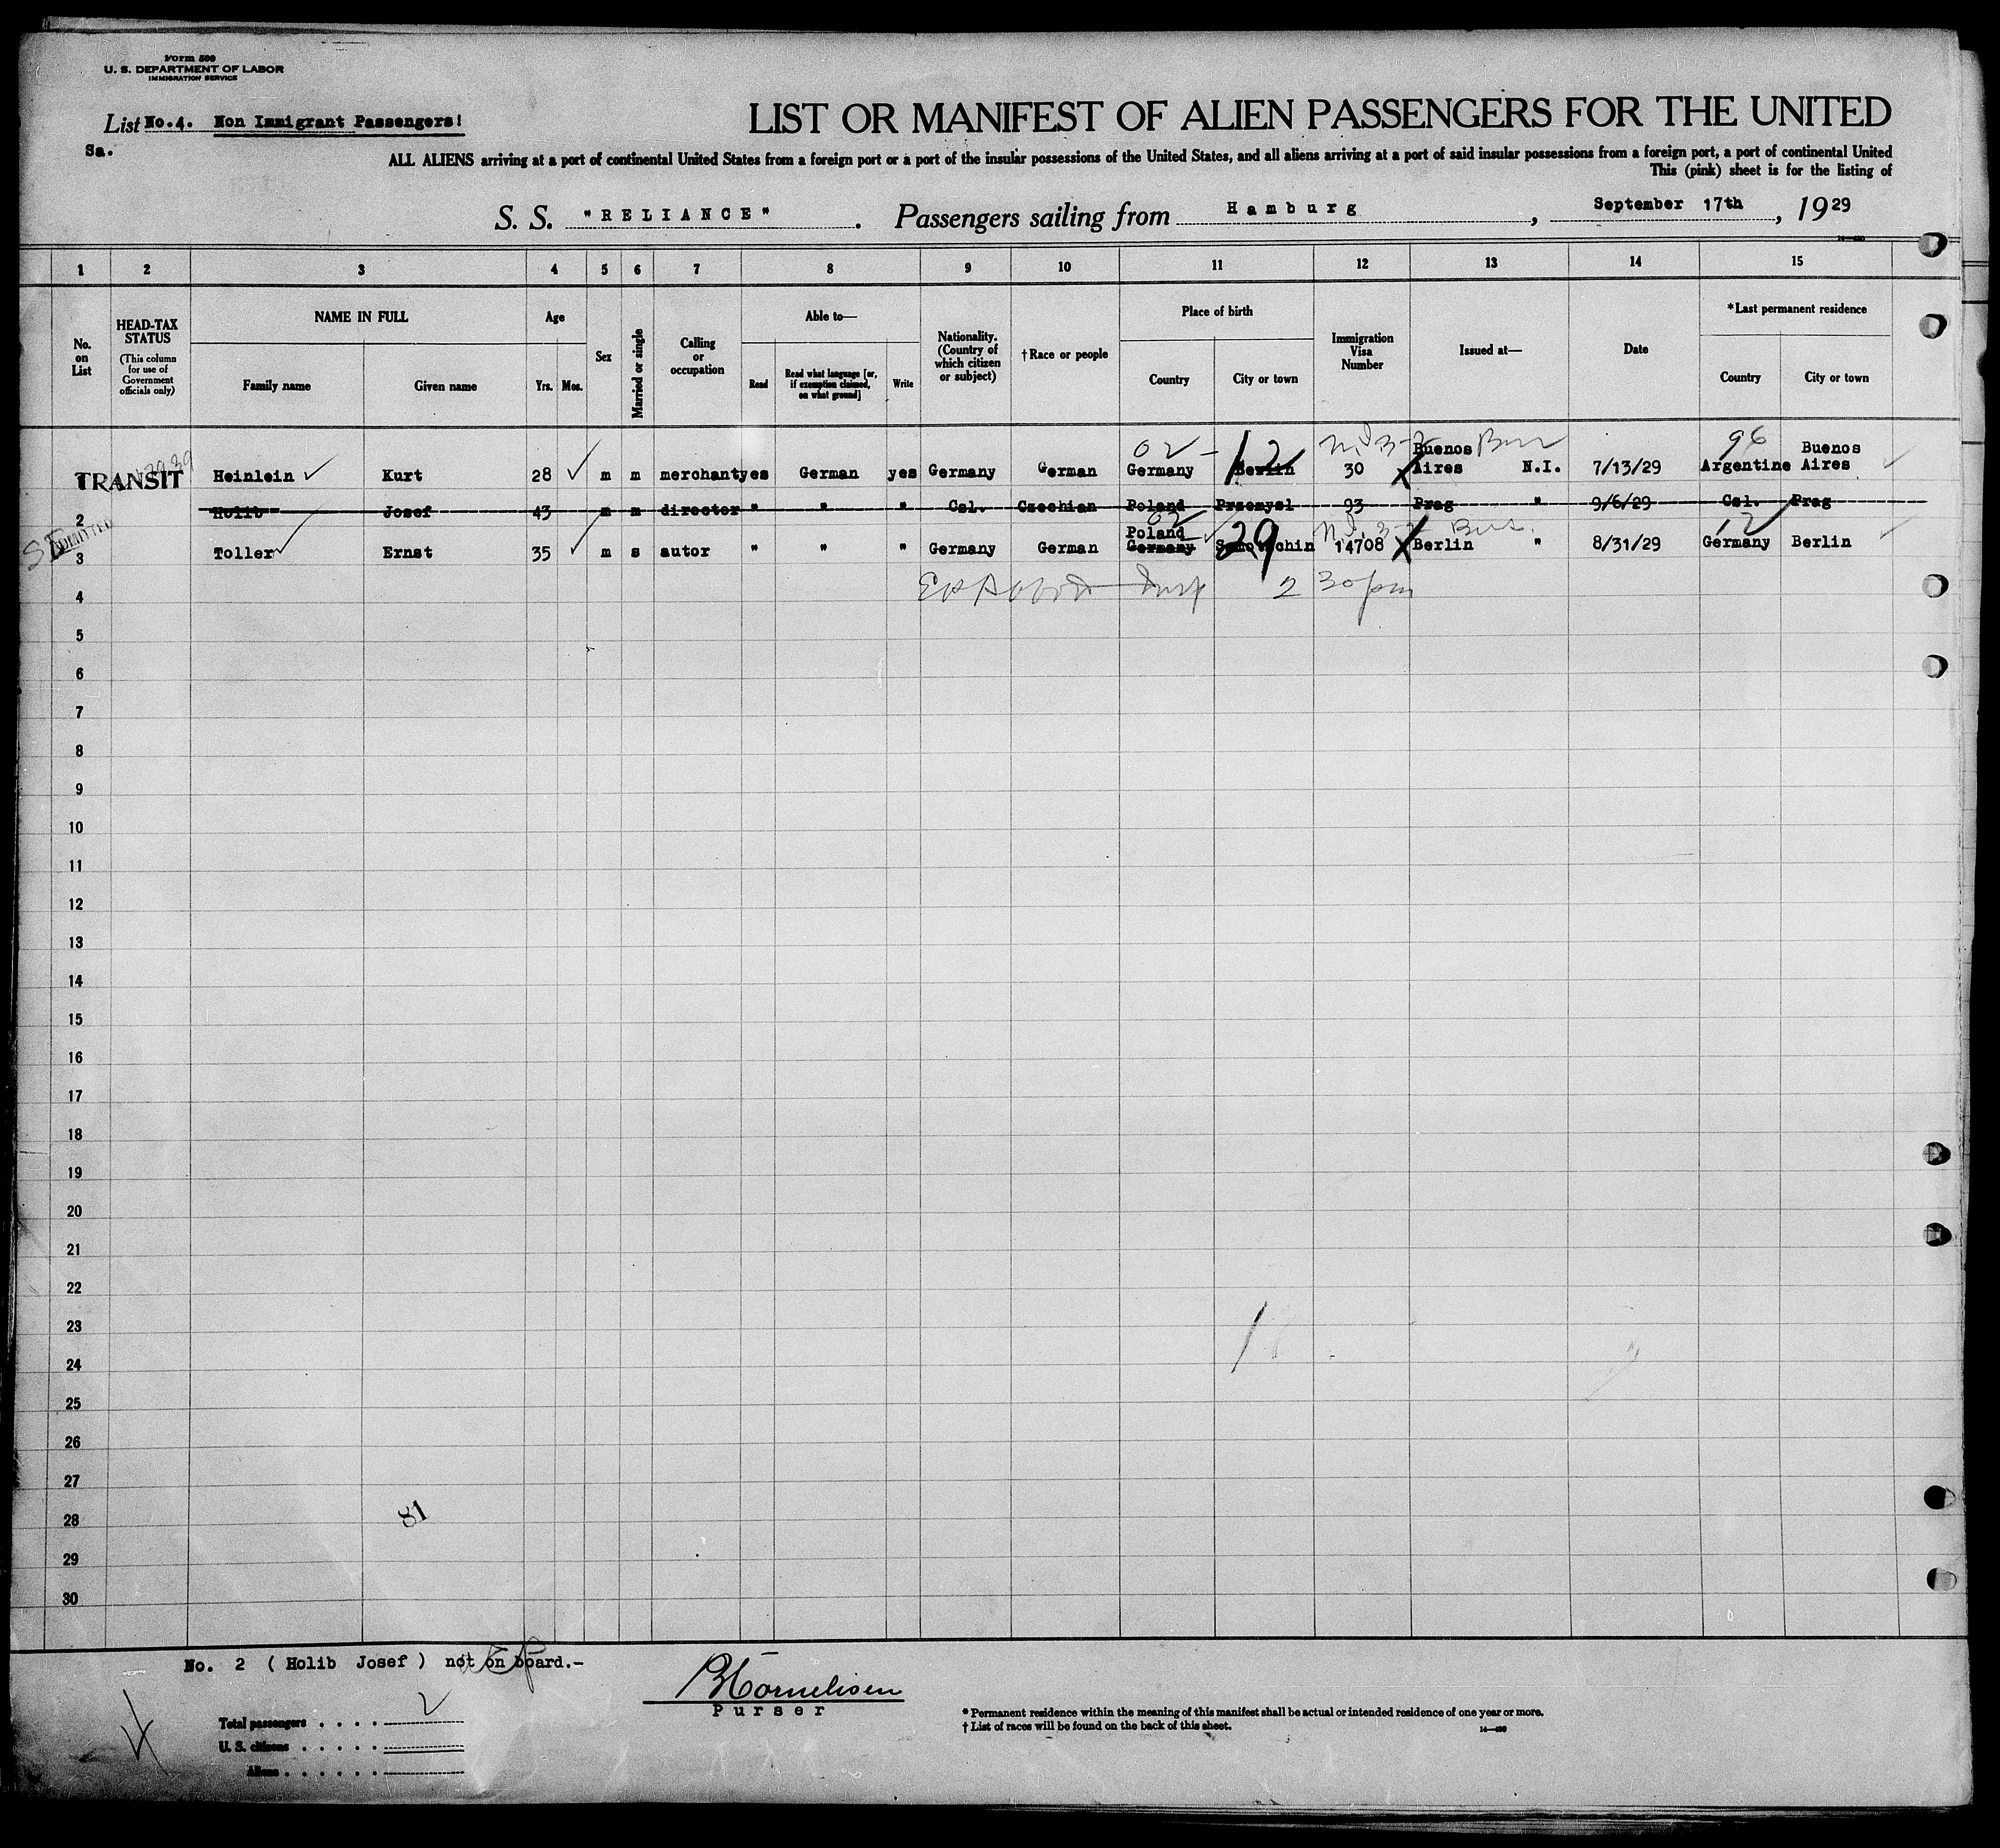 Form 500
U. S. DEPARTMENT OF LABOR
IMMIGRATION SERVICE
List No.4. Non Immigrant Passengers!
Sa.
LIST OR MANIFEST OF ALIEN PASSENGERS FOR THE UNITED
ALL ALIENS arriving at a port of continental United States from a foreign port or a port of the insular possessions of the United States, and all aliens arriving at a port of said insular possessions from a foreign port, a port of continental United
This (pink) sheet is for the listing of
S. S. "RELIANCE". Passengers sailing from Hamburg, September 17th, 1929
1 2 3 4 5 6 7 8 9 10 11 12 13 14 15
No. on List
HEAD-TAX STATUS (This column for use of Government officials only)
NAME IN FULL
Family name Given name
Age
Yrs. Mos.
Sex
Married or single
Calling or occupation
Able to—
Read Read what language [or, if exemption claimed, on what ground] Write
Nationality. (Country of which citizen or subject)
†Race or people
Place of birth
Country City or town
Immigration Visa Number
Issued at—
Date
*Last permanent residence
Country City or town
02 - 12 96
1 TRANSIT Heinlein Kurt 28 m m merchant yes German yes Germany German Germany Berlin 30 Buenos Aires N.I. 7/13/29 Argentine Buenos Aires
2 Holib Josef 43 m m director " " " Csl. Czechian Poland Przemysl 93 Prag " 9/6/29 Csl. Prag
02 29 12
ADMITTED
3 Toller Ernst 35 m s autor " " " Germany German Poland Germany 14708 Berlin " 8/31/29 Germany Berlin
4 2 30 pm
5
6
7
8
9
10
11
12
13
14
15
16
17
18
19
20
21
22
23
24
25
26
27
28 81
29
30
No. 2 ( Holib Josef ) not on board.-
Cornelisen
Purser
Total passengers . . . . 2
U. S. citizens . . . . .
Aliens . . . . . .
* Permanent residence within the meaning of this manifest shall be actual or intended residence of one year or more.
† List of races will be found on the back of this sheet.